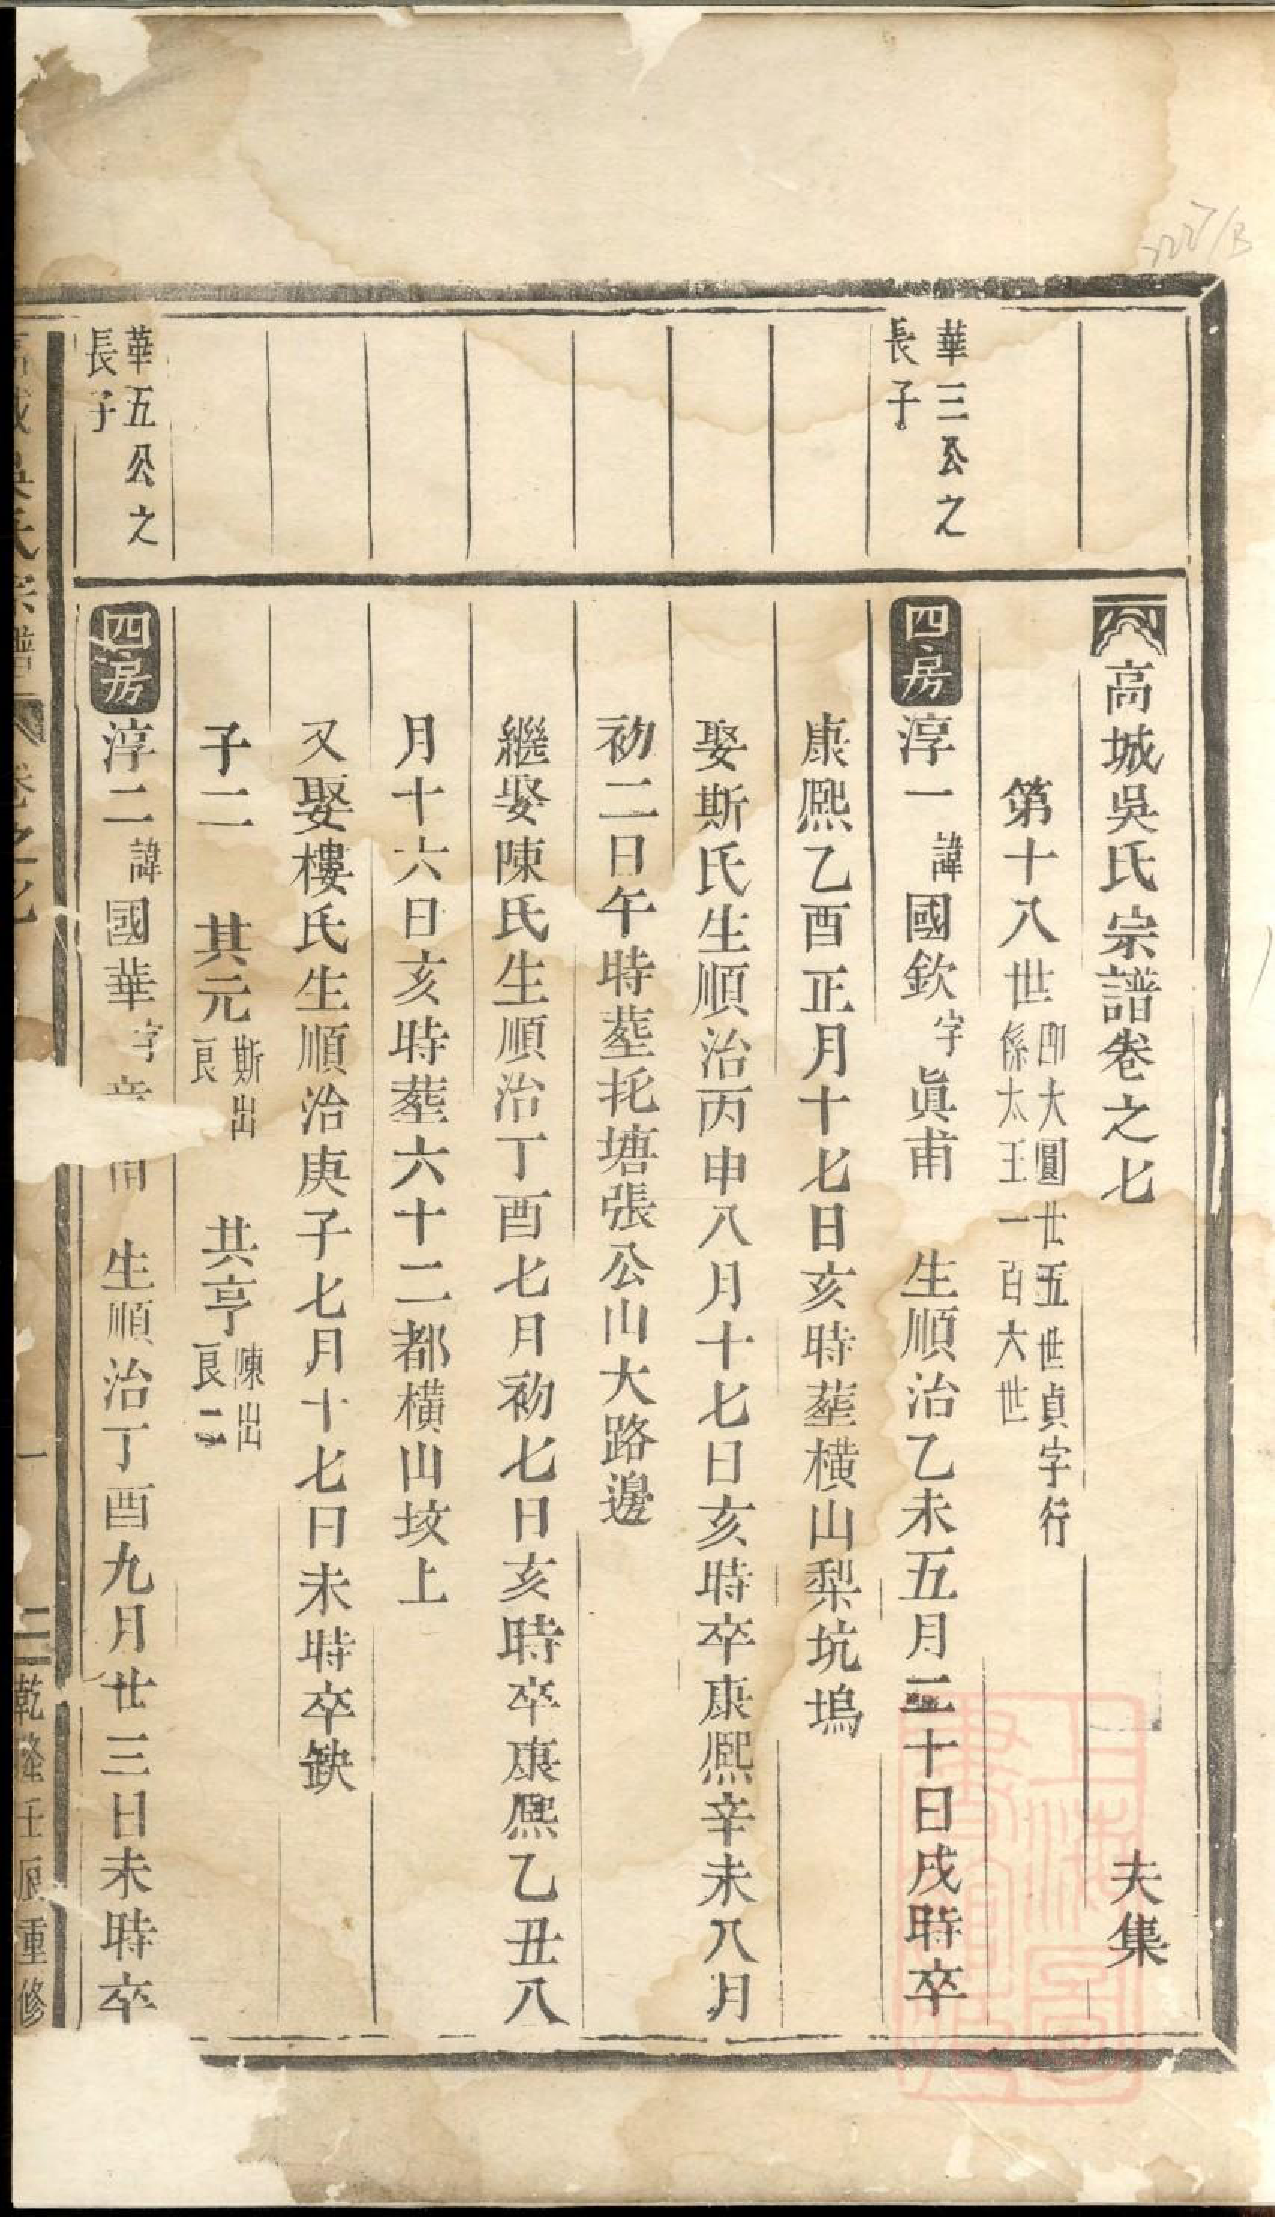 高城吳氏宗譜卷之七 夫集
第十八世 即大圓廿五世貞字行
係太王一百大世
華三公之
長子
四房 淳一 諱國欽 字眞甫 生順治乙未五月二十日戌時卒
康熙乙酉正月十七日亥時塟橫山梨坑塢
娶斯氏生順治丙申八月十七日亥時卒康熙辛未八月
初二日午時塟托塘張公山大路邊
繼娶陳氏生順治丁酉七月初七日亥時卒康熙乙丑八
月十六日亥時塟六十二都橫山坟上
又娶樓氏生順治庚子七月十七日未時卒缺
子二 其元 斯出 良一 共亨 陳出 良二
華五公之
長子
四房 淳二 諱國華 字 生順治丁酉九月廿三日未時卒
高城吳氏宗譜 卷之七 一 乾隆壬辰重修